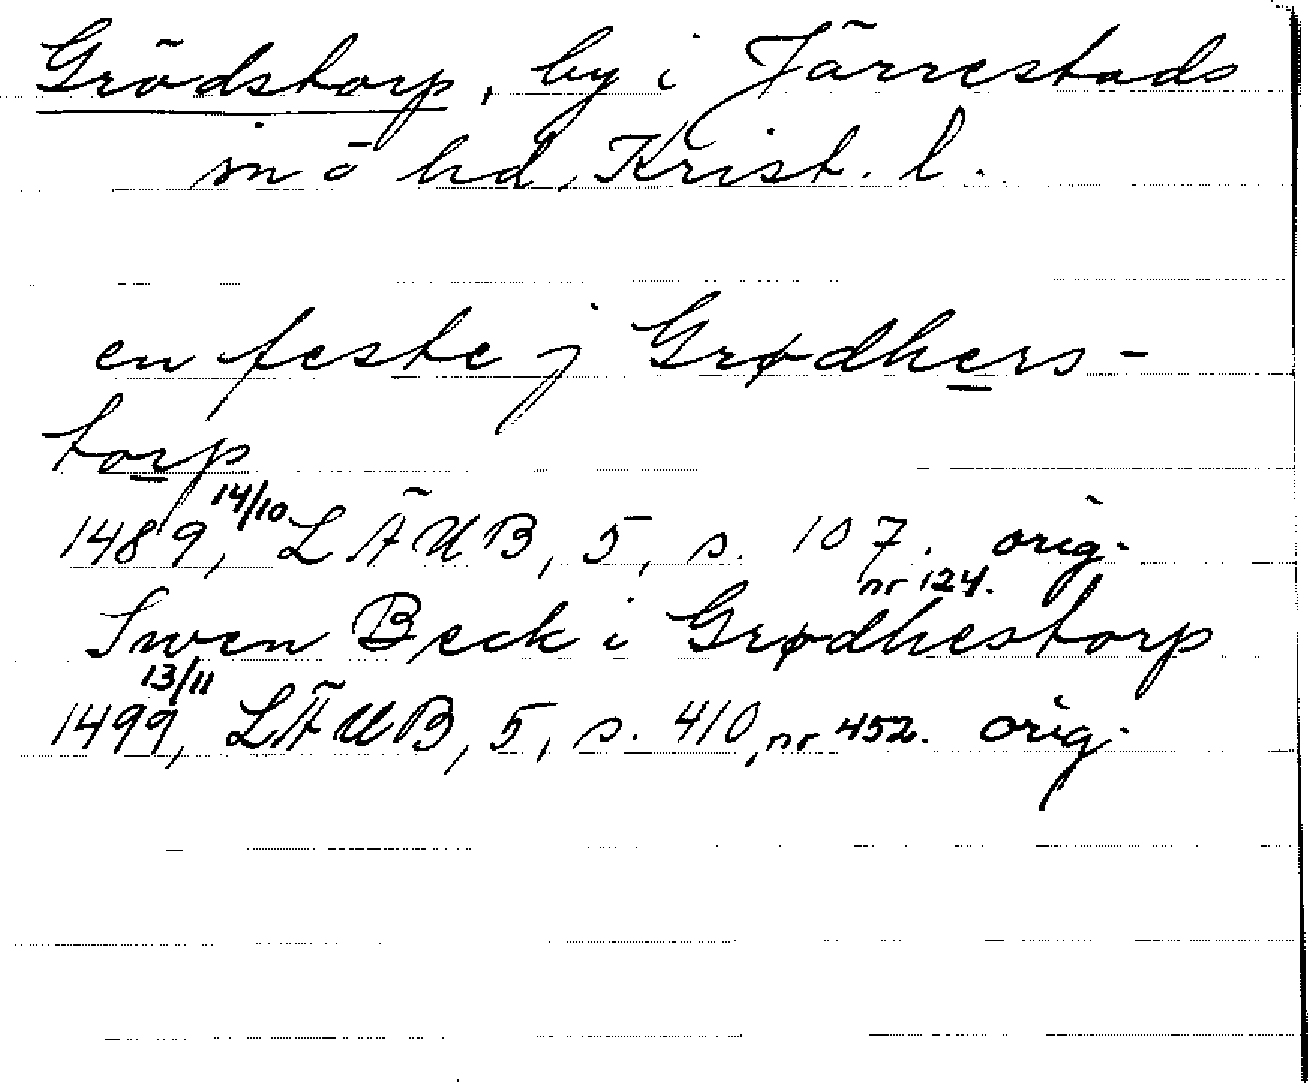 Grödstorp, by i Järrestads
m ö hd, Krist. l.
en feste j Grødhers-
torp
1489, 14/10 LÄUB, 5, s. 107. orig.
nr 124.
Swen Beck i Grødhestorp
1499, 13/11 LÄUB, 5, s. 410, nr 452. orig.